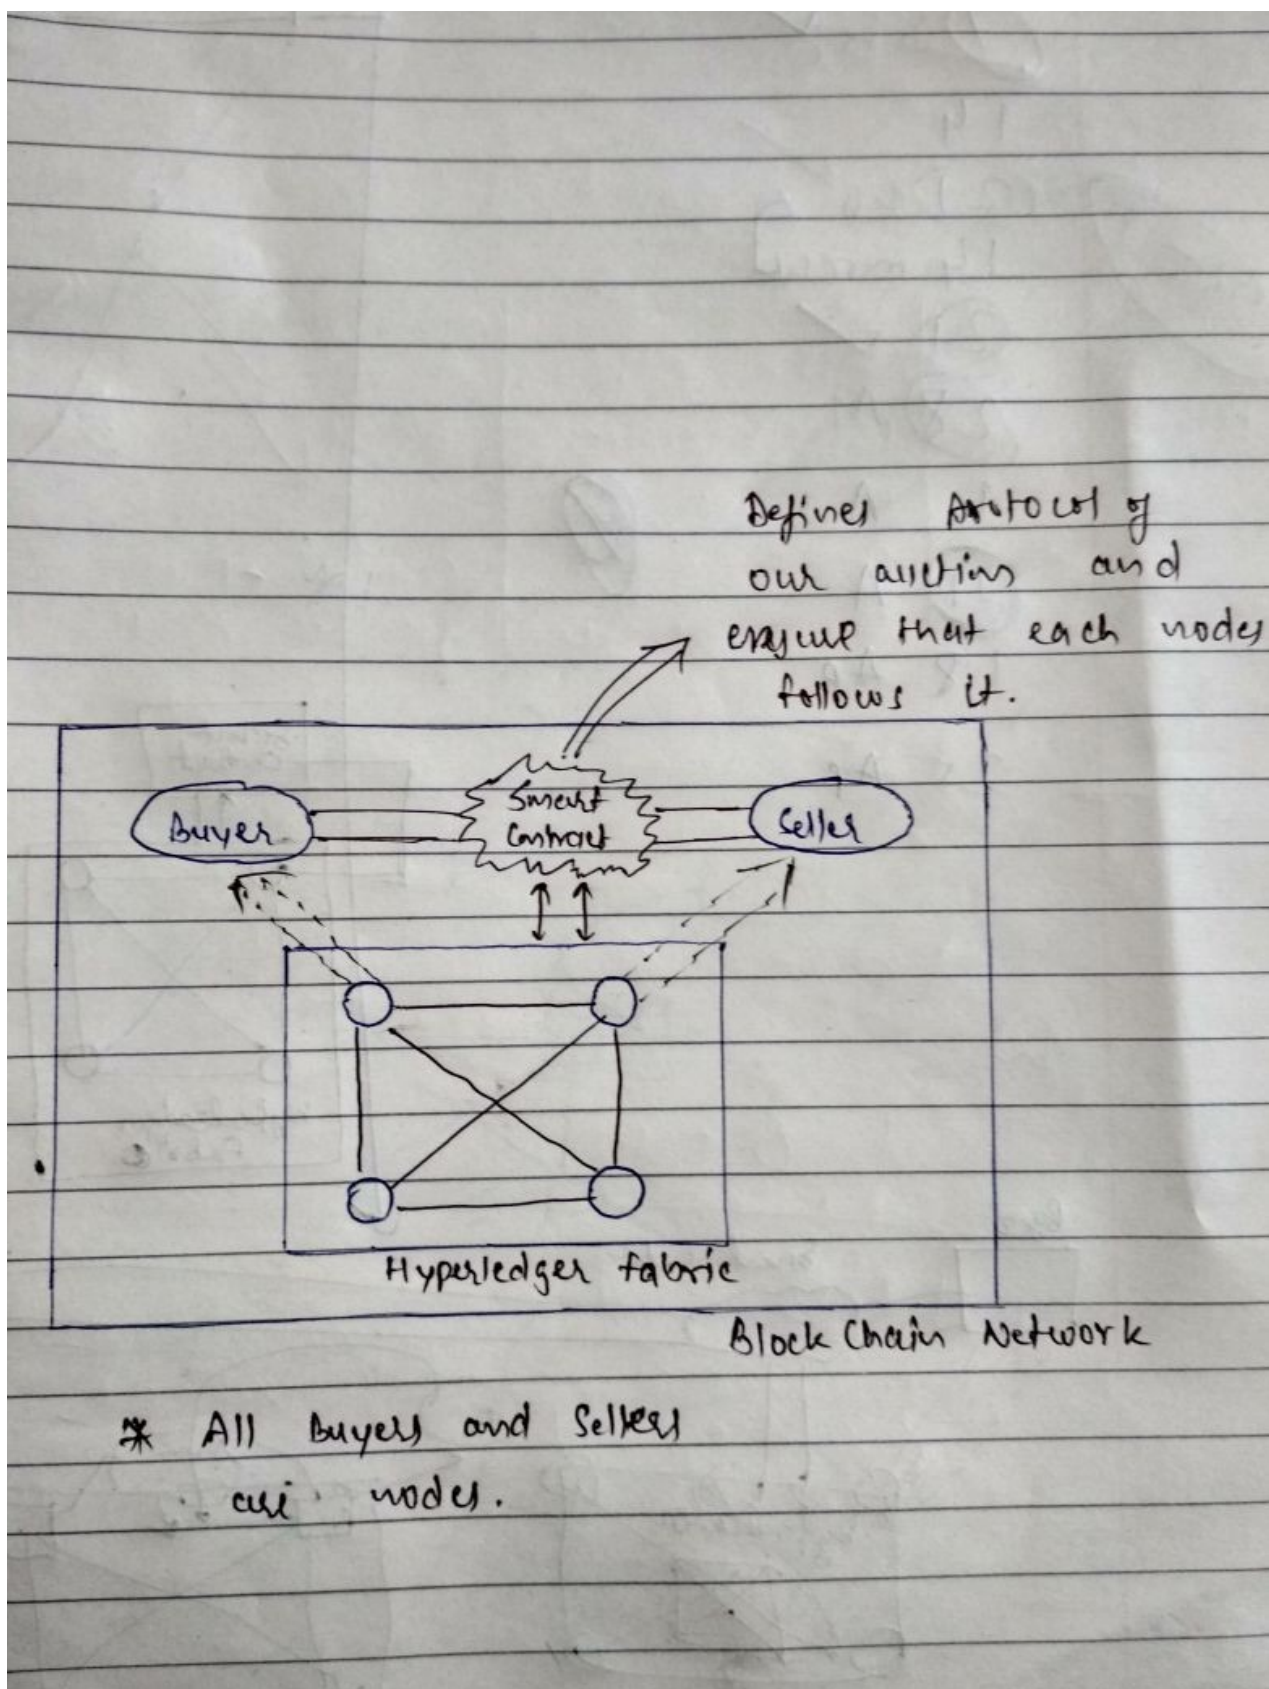 Defines Protocol of
our auction and
ensure that each nodes
follows it.
Smart
Contract
Buyer
Seller
Hyperledger fabric
BlockChain Network
* All Buyers and Sellers
are nodes.